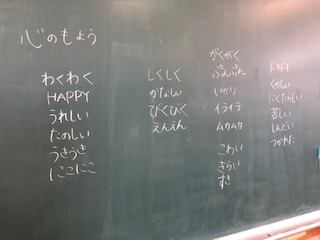 心のもよう
わくわく
HAPPY
うれしい
たのしい
うきうき
にこにこ
しくしく
かなしい
びくびく
えんえん
がくがく
ぷんぷん
いかり
イライラ
ムカムカ
こわい
きらい
すき
くやしい
にくたらしい
苦しい
しんどい
つかれた